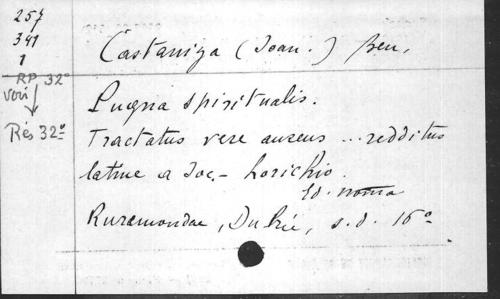 257
341
1
RP 32°
voir
Rés 32°
Castaniza (Joan.) Ben.
Pugna spiritualis.
Tractatus vere aureus ... redditus
latine a Joc.- Lorichio.
Ed. nova
Ruremondae, Du Prié, s.d. 16°